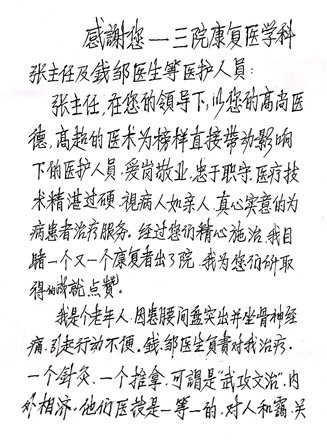 感謝您——三院康复医学科
张主任及钱邹医生等医护人员：
张主任，在您的领导下，以您的高尚医
德，高超的医术为榜样直接带动影响
下的医护人员，爱岗敬业，忠于职守，医疗技
术精湛过硬，視病人如亲人，真心实意的为
病患者治疗服务。经过您们精心施治，我目
睹一个又一个康复者出了院，我为您们所取
得的成就点赞。
我是个老年人，因患腰间盘突出并坐骨神经
痛，引走行动不便。钱、邹医生負責对我治疗，
一个針灸、一个推拿，可謂是“武攻文治”，内
外相济，他们医技是一等一的，对人和靄，关